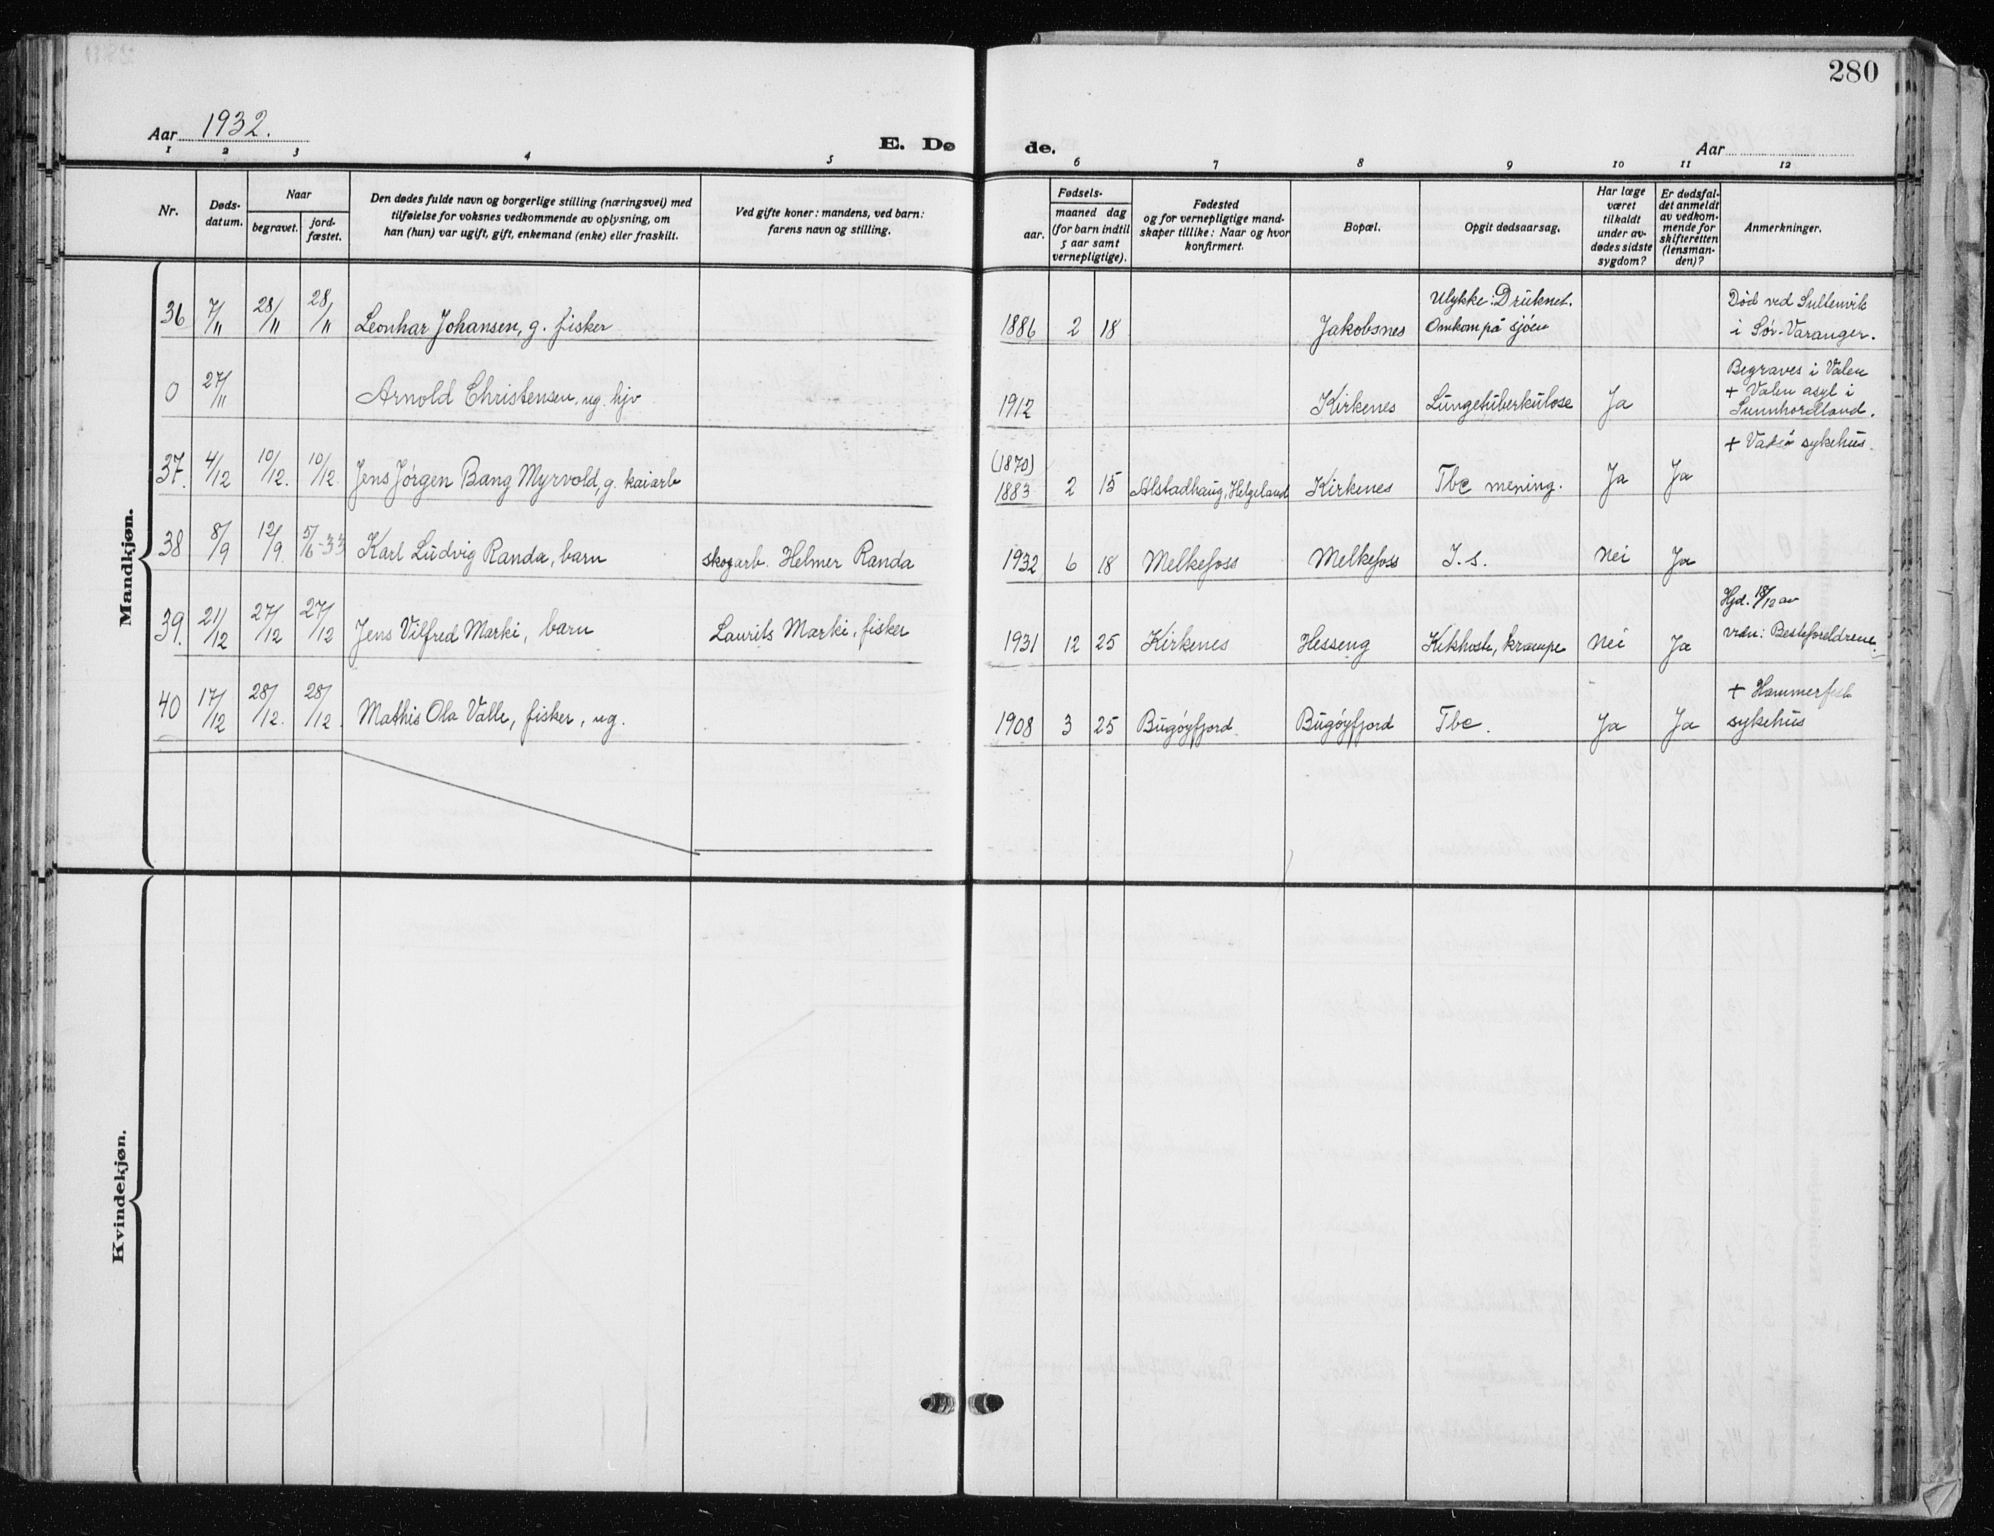 280
Aar 1932.
E. Dø
de.
Aar
1 2 3 4 5 6 7 8 9 10 11 12
Nr.
Døds-
datum.
Naar
begravet.
jord-
fæstet.
Den dødes fulde navn og borgerlige stilling (næringsvei) med
tilføielse for voksnes vedkommende av oplysning, om
han (hun) var ugift, gift, enkemand (enke) eller fraskilt.
Ved gifte koner: mandens, ved barn:
farens navn og stilling.
Fødsels-
aar.
maaned dag
(for barn indtil
5 aar samt
vernepligtige).
Fødested
og for vernepligtige mand-
skaper tillike: Naar og hvor
konfirmert.
Bopæl.
Opgit dødsaarsag.
Har læge
været
tilkaldt
under av-
dødes sidste
sygdom?
Er dødsfal-
det anmeldt
av vedkom-
mende for
skifteretten
(lensman-
den)?
Anmerkninger.
Mandkjøn.
36 7/11 28/11 28/11 Leonhar Johansen, g. fisker 1886 2 18 Jakobsnes Ulykke: Druknet.
Omkom på sjøen
Død ved
i Sør-Varanger.
0 27/11 Arnold Christensen, ug. hjv 1912 Kirkenes Lungetuberkulose Ja
Begraves i Valen
+ Valen asyl i
Sunnhordland.
37. 4/12 10/12. 10/12. Jens Jørgen Bang Myrvold, g. kaiarb (1870)
1883 2 15 Alstadhaug, Helgeland Kirkenes Tbc mening. Ja Ja
+ Vadsø sykehus.
38 8/9 12/9. 5/6-33 Karl Ludvig Randa, barn skogarb. Helmer Randa 1932 6 18 Melkefoss Melkefoss I. s. Nei Ja
39. 21/12 27/12 27/12 Jens Vilfred Marki, barn Laurits Marki, fisker 1931 12 25 Kirkenes Hesseng Kikhoste, krampe Nei Ja
Hjd. 18/12 av
vedn: Besteforeldrene.
40 17/12 28/12. 28/12. Mathis Ola Valle, fisker, ug. 1908 3 25 Bugøyfjord Bugøyfjord Tbc. Ja Ja
+ Hammerfest
sykehus
Kvindekjøn.